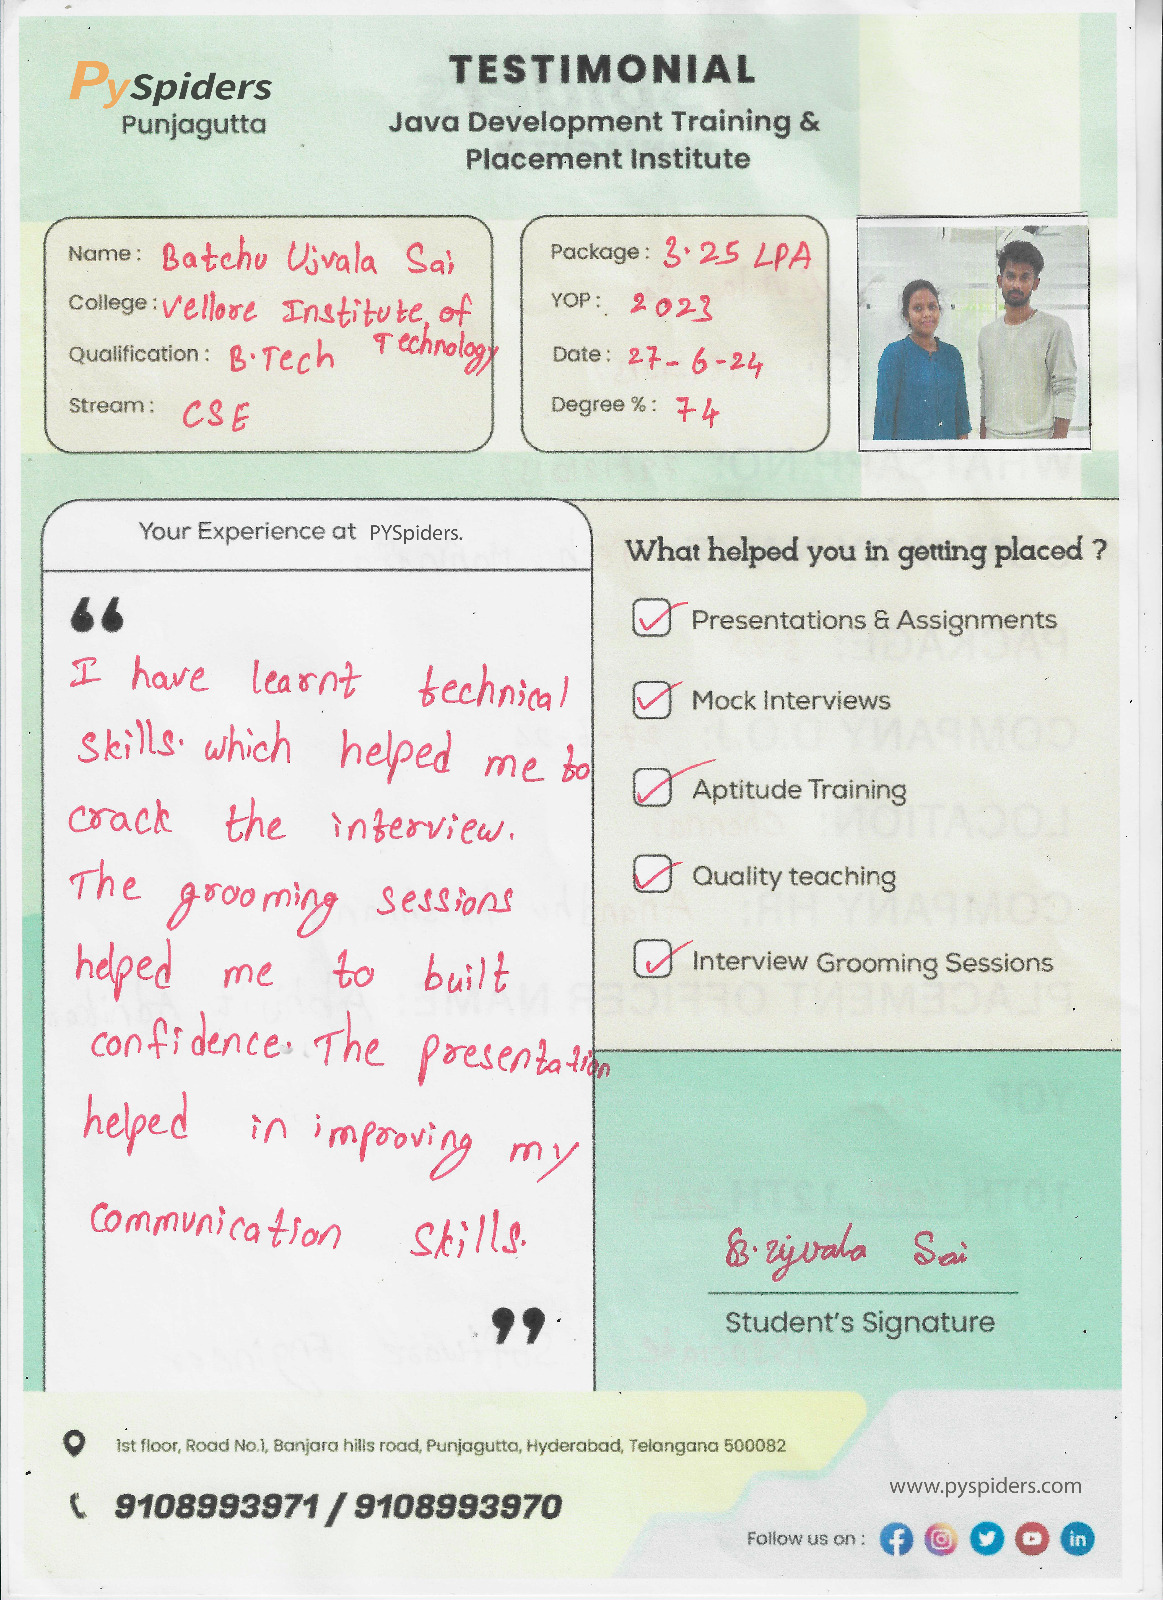 PySpiders
Punjagutta
TESTIMONIAL
Java Development Training &
Placement Institute
Name : Batchu Ujvala Sai
College : Vellore Institute of
Technology
Qualification : B.Tech
Stream : CSE
Package : 3.25 LPA
YOP : 2023
Date : 27-6-24
Degree % : 74
Your Experience at PYSpiders.
“
I have learnt technical
skills. which helped me to
crack the interview.
The grooming sessions
helped me to built
confidence. The presentation
helped in improving my
communication skills.
”
What helped you in getting placed ?
Presentations & Assignments
Mock Interviews
Aptitude Training
Quality teaching
Interview Grooming Sessions
B. Ujvala Sai
Student's Signature
1st floor, Road No.1, Banjara hills road, Punjagutta, Hyderabad, Telangana 500082
9108993971 / 9108993970
www.pyspiders.com
Follow us on :